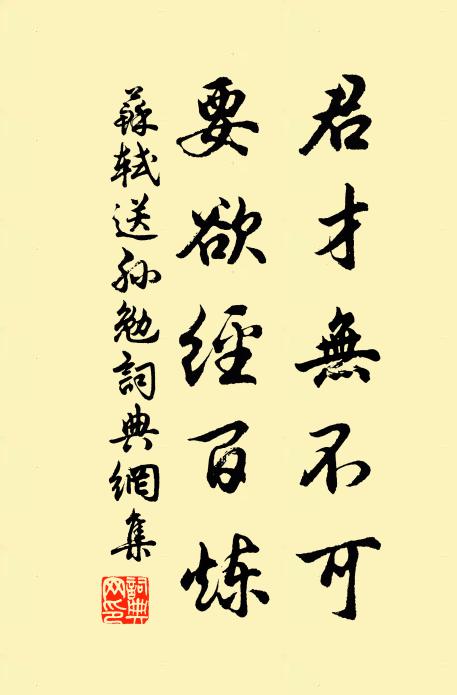 君才無不可
要欲經百炼
蘇軾送孙勉詞典網集
詞典网印